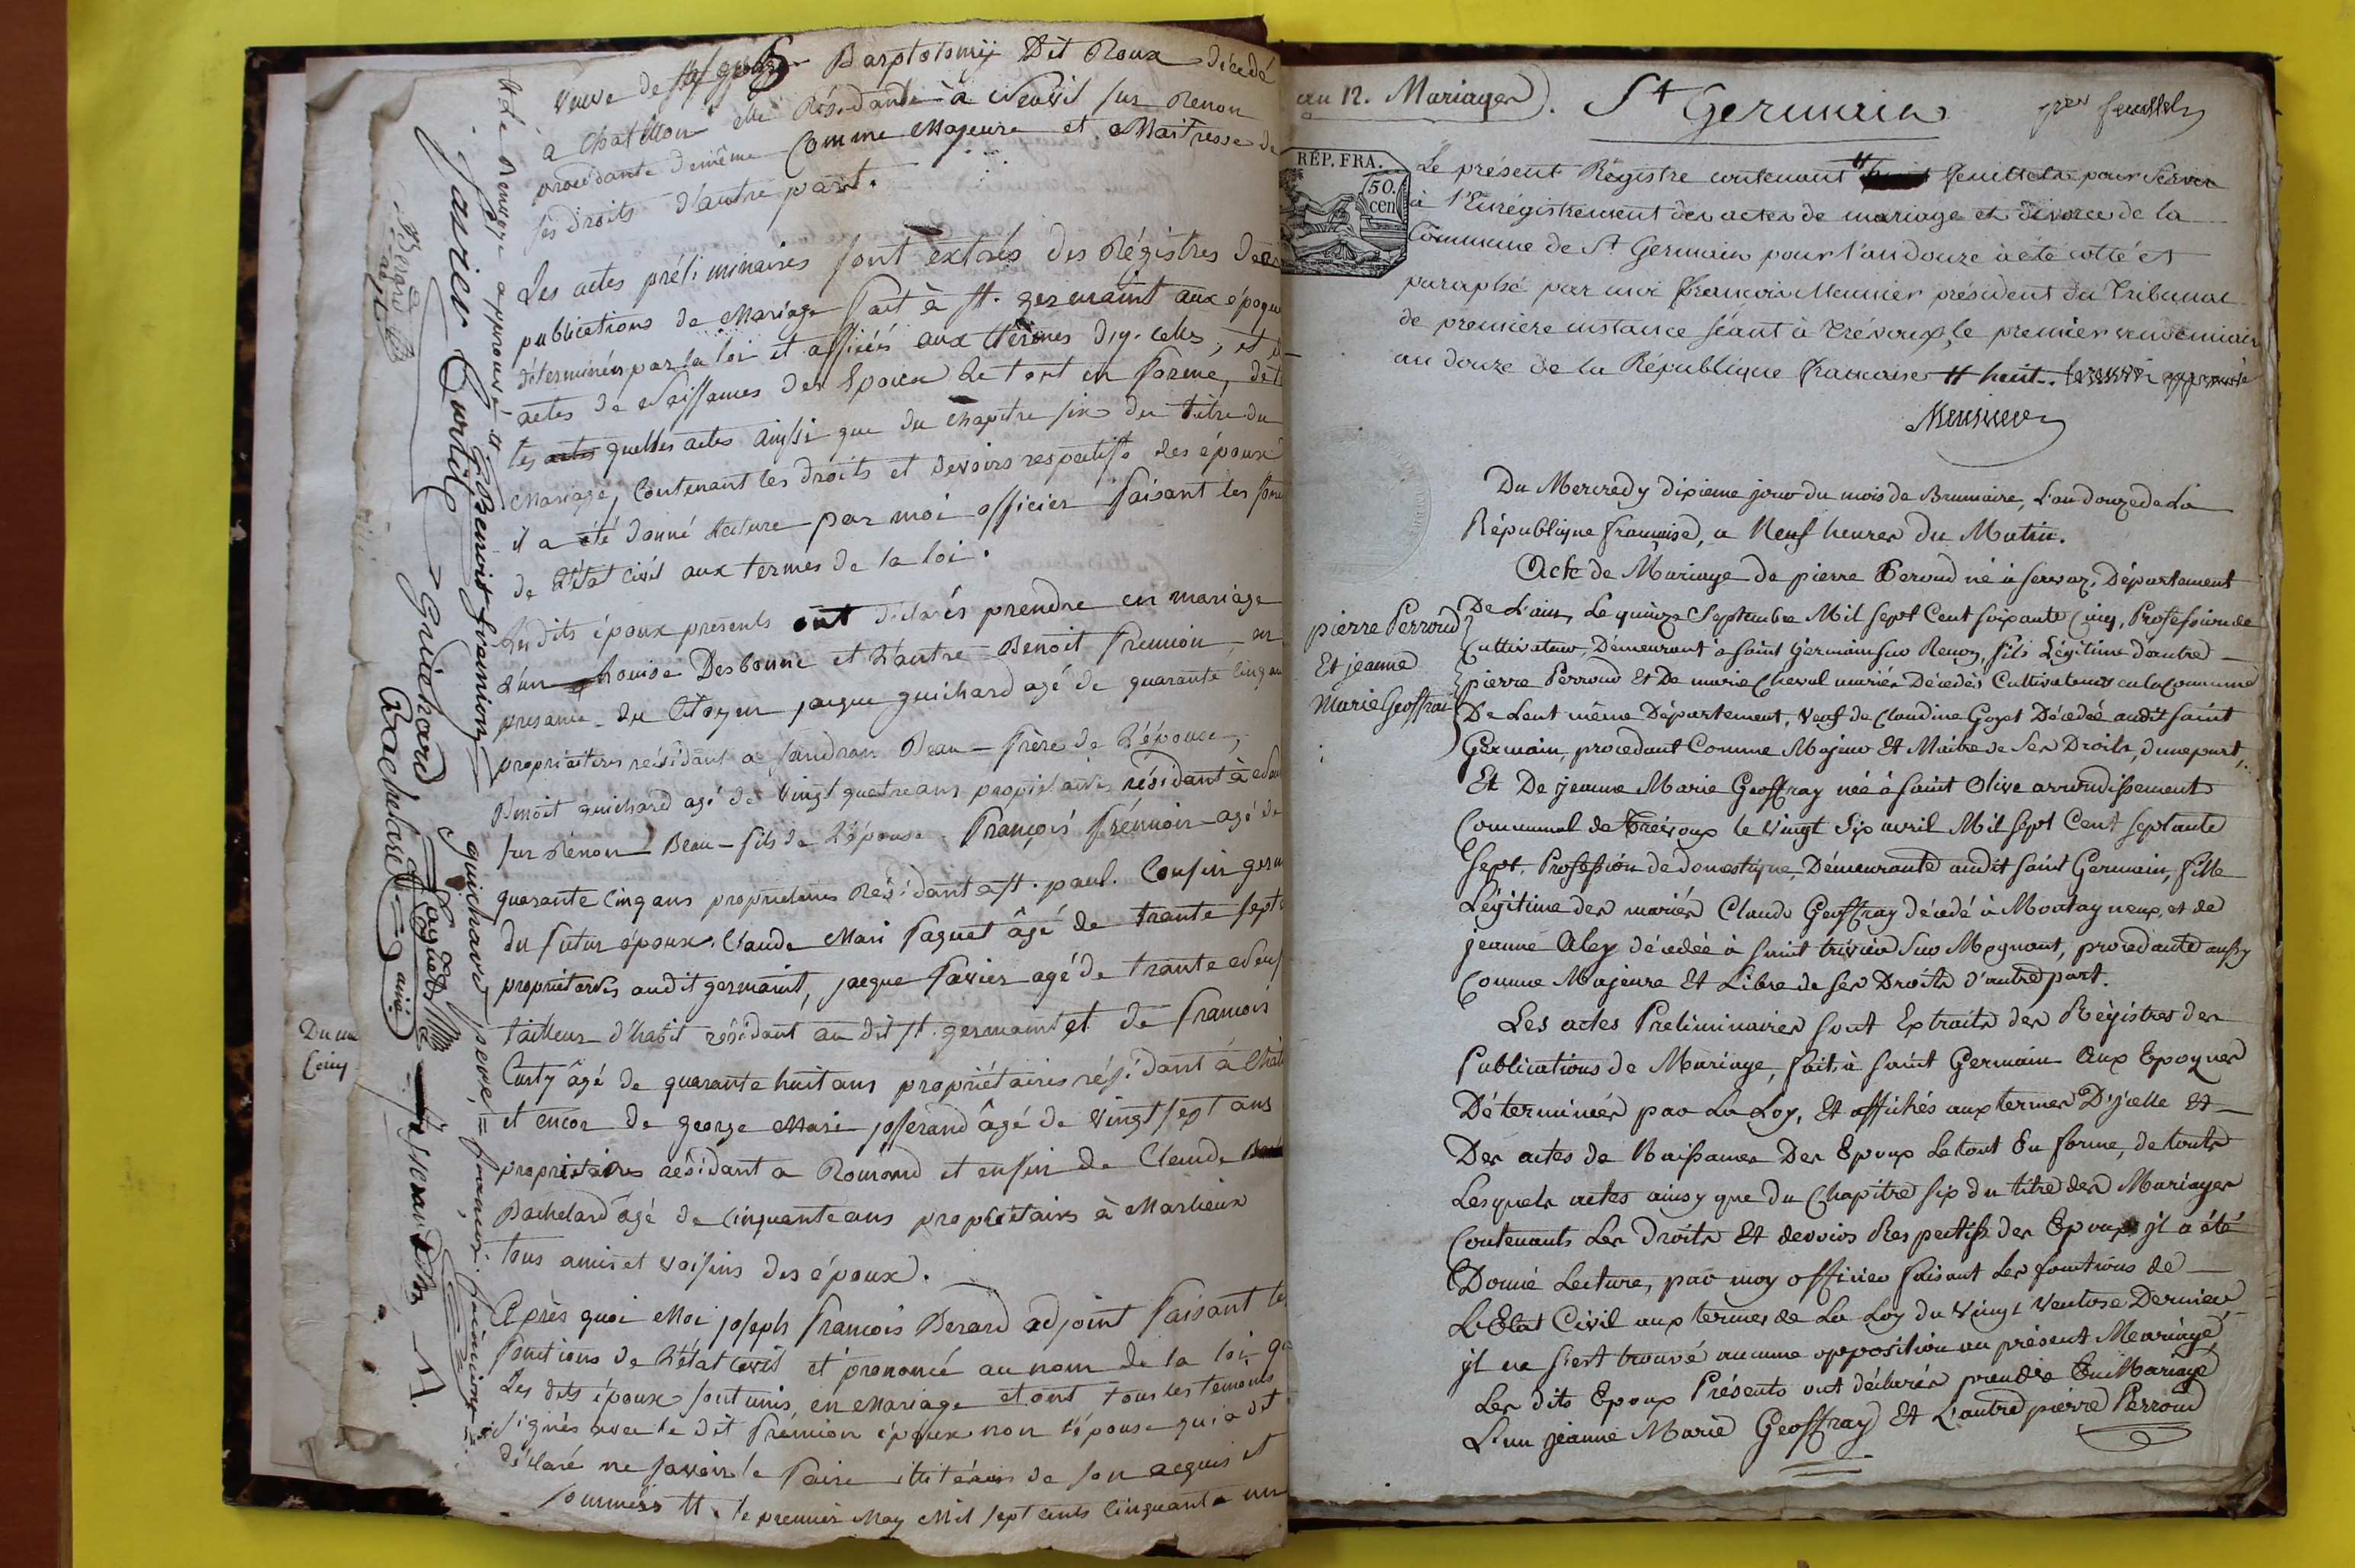 veuve de Barptolomy Dit Roux décédé
à Chatillon elle Résidante à Neuvil sur Renon
procédante de même Comme Majeure et Maitresse de
ses droits d'autre part.
Les actes préliminaires sont extraits des Régistres de
publications de Mariage fait à st. germaint aux époque
déterminées par la loi et affichés aux termes dy-celles, et
actes de Naissances des Epoux Le tout en forme, de t
tes quelles actes ainssi que du Chapitre six du titre du
Mariage, Contenant les droits et devoirs respectifs des époux
il a été donné Lecture par moi officier faisant les fon
de l'état Civil aux termes de la loi.
Les dits époux présents ont déclarés prendre en mariage
l'un Louise Desbonne et L'autre Benoit fremion en
presance du Citoyen jacque guichard agé de quarante cinq an
propriétaires résidant a sandran Beau-frère de L'épouse,
Benoit guichard agé de vingt quatre ans propriétaires résidant à
sur Rénon Beau-fils de L'épouse. François frémion agé de
quarante cinq ans propriétaires Résidant a st. paul. Cousin germ
du futur époux. Claude Mari Paquet âgé de trante sept
propriétaires audit germaint, jacque favier agé de trante neuf
tailleur d'habit résidant au dit st. germaint et de françois
Curty âgé de quarante huit ans propriétaires résidant à Chati
et encor de george Mari josserand âgé de vingt sept ans
propriétaires résidant a Romand et enfin de Claude
Bachelard âgé de Cinquante ans propriétairs à Marlieux
tous amis et voisins des époux.
Après quoi Moi joseph françois Berard adjoint faisant les
fonctions de L'état civil et prononcé au nom de la loi q
Les dits époux sont unis en Mariage et ont tous les temoins
signés avec le dit frémion époux non L'épouse qui a dit
déclaré ne savoir le faire de son acquis et
sommées le premier May Mil sept cents Cinquante un
Le Renvoye approuvé
Benoist fremion
favier Curtil
Berard
adjt
Guichard
Bachelard
ainé
guichard
françois
Du
Cinq
an 12. Mariages). St Germain 1er feuillet
RÉP. FRA.
50.
cen
Le présent Régistre contenant feuillets pour Servir
à l'Enrégistrement des actes de mariage et divorce de la
Commune de St Germain pour l'an douze à été cotté et
paraphé par moi françois Meunier président du Tribunal
de premiere instance séant à Trévoux, le premier vendemiair
an douze de la République française # huit. approuvé
Meunier
Du Mercredy dixieme jour du mois de Brumaire, L'an douze de La
République française, a Neuf heures du Matin.
Acte de Mariage de pierre Peroud né à servaz, Département
De L'ain, Le quinze Septembre Mil sept Cent soixante Cinq, Profession de
pierre Perroud
Et jeanne
Marie Geoffrai
Cultivateur, Démeurant a saint Germain sur Renon, fils Légitime d'autre
pierre Perroud Et De marie Cheval mariés Décédés Cultivateurs en la Commune
De Lent même Département, Veuf de Claudine Goyet Décédée audit saint
Germain, procedant Comme Majeur Et Maitre de Ses Droits, d'une part,
Et De jeanne Marie Geoffray née à saint Olive arrondissement
Communal de Trévoux le vingt Six avril Mil sept Cent septante
sept, Profession de domestique, Démeurante audit saint Germain, fille
Légitime des mariés Claude Geoffray décédé à Montagneux, et de
jeanne Aley décédée à saint trivier sur Mognant, procedante aussy
Comme Majeure Et Libre de ses Droits d'autre part.
Les actes Preliminaires sont Extraits des Régistres des
Publications de Mariage, faits à saint Germain Aux Epoques
Déterminées par La Loy, Et affichés aux termes D'jcelle Et
Des actes de Naissances Des Epoux Le tout En forme, de touts
Lesquels actes ainsy que du Chapitre six du titre des Mariages
Contenants Les Droits Et devoirs Respectifs des Epoux jl a été
Donné Lecture, par moy officier faisant Les fonctions de
L'Etat Civil aux termes de La Loy du vingt ventose Dernier,
jl ne s'est trouvé aucune opposition au présent Mariage,
Les dits Epoux Présents ont déclarés prendre En Mariage
L'un jeanne Marie Geoffray Et L'autre pierre Perroud